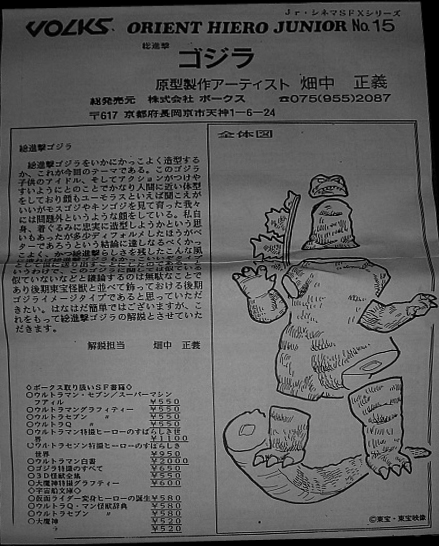 Jr・シネマSFXシリーズ
VOLKS ORIENT HIERO JUNIOR No.15
総進撃
ゴジラ
原型製作アーティスト 畑中 正義
総発売元 株式会社 ボークス ☎075(955)2087
〒617 京都府長岡京市天神1-6-24
総進撃ゴジラ
総進撃ゴジラをいかにかっこよく造型する
か、これが今回のテーマである。このゴジラ
子供のアイドル、そしてアクションがつけや
すいようにとのことでかなり人間に近い体型
をしており顔もユーモラスといえば聞こえが
いいがモスゴジやキンゴジを見て育った我々
には問題外というような顔をしている。私自
身、着ぐるみに忠実に造型しようかという思
いもあったが多少ディフォルメしたほうがベ
ターであろうという結論に達しなるべくかっ
こよく、かつ総進撃らしさを残したこんな風
というわけで、このゴジラに関しては似ている
似ていないなどと議論するのは無駄なことで
あり後期東宝怪獣と並べて飾っておける後期
ゴジライメージタイプであると思っていただ
きたい。はなはだ簡単ではございますが、こ
れをもって総進撃ゴジラの解説とさせていた
だきます。
解説担当 畑中 正義
◇ボークス取り扱いSF書籍◇
○ウルトラマン・セブン/スーパーマシン
ファイル ¥550
○ウルトラマングラフィティー ¥550
○ウルトラセブン 〃 ¥550
○ウルトラQ 〃 ¥550
○ウルトラマン特撮ヒーローのすばらしき世
界 ¥1100
○ウルトラセブン特撮ヒーローのすばらしき
世界 ¥950
○ウルトラマン白書 ¥2000
○ゴジラ特撮のすべて ¥650
○3D怪獣全集 ¥550
○大魔神特撮グラフィティー ¥600
◇宇宙船文庫◇
○仮面ライダー変身ヒーローの誕生 ¥580
○ウルトラQ・マン怪獣辞典 ¥580
○ウルトラセブン 〃 ¥580
○大魔神 ¥520
¥520
全体図
©東宝・東宝映像